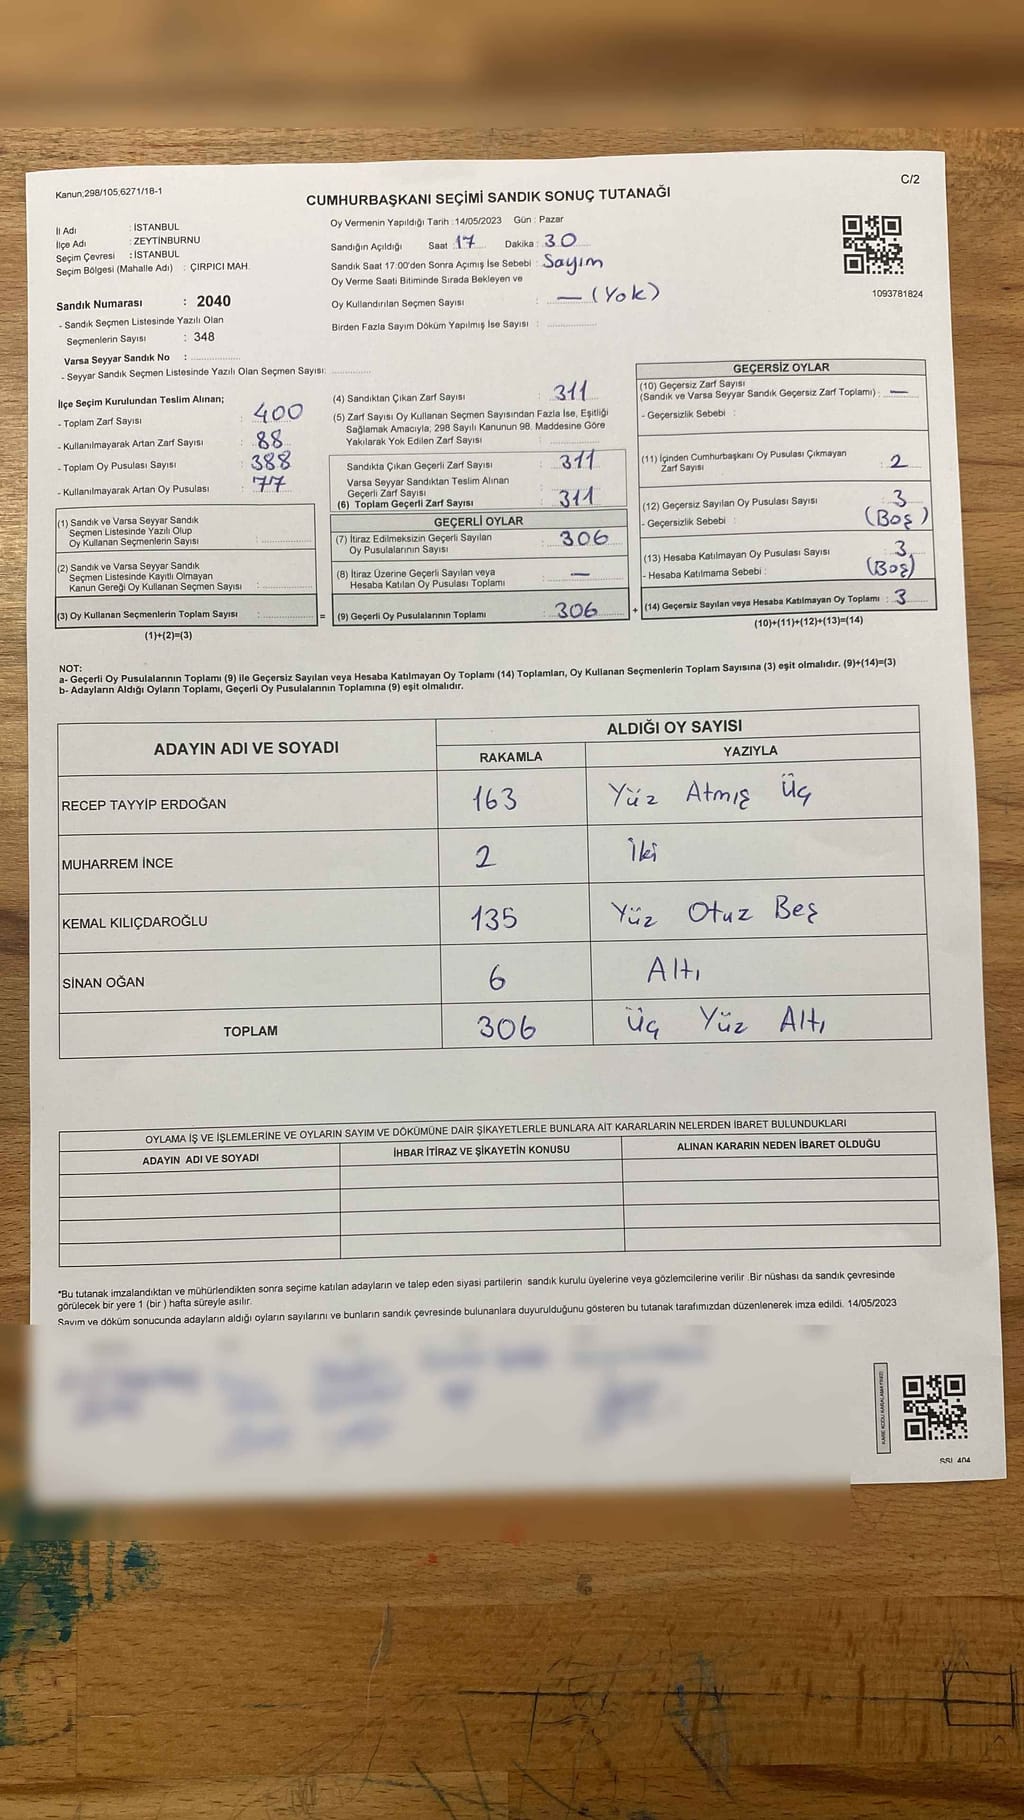 Kanun;298/105,6271/18-1
C/2
CUMHURBAŞKANI SEÇİMİ SANDIK SONUÇ TUTANAĞI
İl Adı : İSTANBUL
İlçe Adı : ZEYTİNBURNU
Seçim Çevresi : İSTANBUL
Seçim Bölgesi (Mahalle Adı) : ÇIRPICI MAH.
Sandık Numarası : 2040
- Sandık Seçmen Listesinde Yazılı Olan
Seçmenlerin Sayısı : 348
Varsa Seyyar Sandık No :
- Seyyar Sandık Seçmen Listesinde Yazılı Olan Seçmen Sayısı:
Oy Vermenin Yapıldığı Tarih :14/05/2023 Gün : Pazar
Sandığın Açıldığı Saat : 17 Dakika : 30
Sandık Saat 17:00'den Sonra Açımış İse Sebebi : Sayım
Oy Verme Saati Bitiminde Sırada Bekleyen ve
Oy Kullandırılan Seçmen Sayısı : — (Yok)
Birden Fazla Sayım Döküm Yapılmış İse Sayısı :
1093781824
İlçe Seçim Kurulundan Teslim Alınan;
- Toplam Zarf Sayısı : 400
- Kullanılmayarak Artan Zarf Sayısı : 88
- Toplam Oy Pusulası Sayısı : 388
- Kullanılmayarak Artan Oy Pusulası : 77
(1) Sandık ve Varsa Seyyar Sandık
Seçmen Listesinde Yazılı Olup
Oy Kullanan Seçmenlerin Sayısı :
(2) Sandık ve Varsa Seyyar Sandık
Seçmen Listesinde Kayıtlı Olmayan
Kanun Gereği Oy Kullanan Seçmen Sayısı :
(3) Oy Kullanan Seçmenlerin Toplam Sayısı : =
(1)+(2)=(3)
(4) Sandıktan Çıkan Zarf Sayısı : 311
(5) Zarf Sayısı Oy Kullanan Seçmen Sayısından Fazla İse, Eşitliği
Sağlamak Amacıyla, 298 Sayılı Kanunun 98. Maddesine Göre
Yakılarak Yok Edilen Zarf Sayısı :
Sandıkta Çıkan Geçerli Zarf Sayısı : 311
Varsa Seyyar Sandıktan Teslim Alınan
Geçerli Zarf Sayısı :
(6) Toplam Geçerli Zarf Sayısı : 311
GEÇERLİ OYLAR
(7) İtiraz Edilmeksizin Geçerli Sayılan
Oy Pusulalarının Sayısı : 306
(8) İtiraz Üzerine Geçerli Sayılan veya
Hesaba Katılan Oy Pusulası Toplamı : —
(9) Geçerli Oy Pusulalarının Toplamı : 306 +
GEÇERSİZ OYLAR
(10) Geçersiz Zarf Sayısı
(Sandık ve Varsa Seyyar Sandık Geçersiz Zarf Toplamı) : —
- Geçersizlik Sebebi :
(11) İçinden Cumhurbaşkanı Oy Pusulası Çıkmayan
Zarf Sayısı : 2
(12) Geçersiz Sayılan Oy Pusulası Sayısı : 3
- Geçersizlik Sebebi : (Boş)
(13) Hesaba Katılmayan Oy Pusulası Sayısı : 3
- Hesaba Katılmama Sebebi : (Boş)
(14) Geçersiz Sayılan veya Hesaba Katılmayan Oy Toplamı : 3
(10)+(11)+(12)+(13)=(14)
NOT:
a- Geçerli Oy Pusulalarının Toplamı (9) ile Geçersiz Sayılan veya Hesaba Katılmayan Oy Toplamı (14) Toplamları, Oy Kullanan Seçmenlerin Toplam Sayısına (3) eşit olmalıdır. (9)+(14)=(3)
b- Adayların Aldığı Oyların Toplamı, Geçerli Oy Pusulalarının Toplamına (9) eşit olmalıdır.
ADAYIN ADI VE SOYADI ALDIĞI OY SAYISI
RAKAMLA YAZIYLA
RECEP TAYYİP ERDOĞAN 163 Yüz Atmış Üç
MUHARREM İNCE 2 İki
KEMAL KILIÇDAROĞLU 135 Yüz Otuz Beş
SİNAN OĞAN 6 Altı
TOPLAM 306 Üç Yüz Altı
OYLAMA İŞ VE İŞLEMLERİNE VE OYLARIN SAYIM VE DÖKÜMÜNE DAİR ŞİKAYETLERLE BUNLARA AİT KARARLARIN NELERDEN İBARET BULUNDUKLARI
ADAYIN ADI VE SOYADI İHBAR İTİRAZ VE ŞİKAYETİN KONUSU ALINAN KARARIN NEDEN İBARET OLDUĞU
*Bu tutanak imzalandıktan ve mühürlendikten sonra seçime katılan adayların ve talep eden siyasi partilerin sandık kurulu üyelerine veya gözlemcilerine verilir .Bir nüshası da sandık çevresinde
görülecek bir yere 1 (bir ) hafta süreyle asılır.
Sayım ve döküm sonucunda adayların aldığı oyların sayılarını ve bunların sandık çevresinde bulunanlara duyurulduğunu gösteren bu tutanak tarafımızdan düzenlenerek imza edildi. 14/05/2023